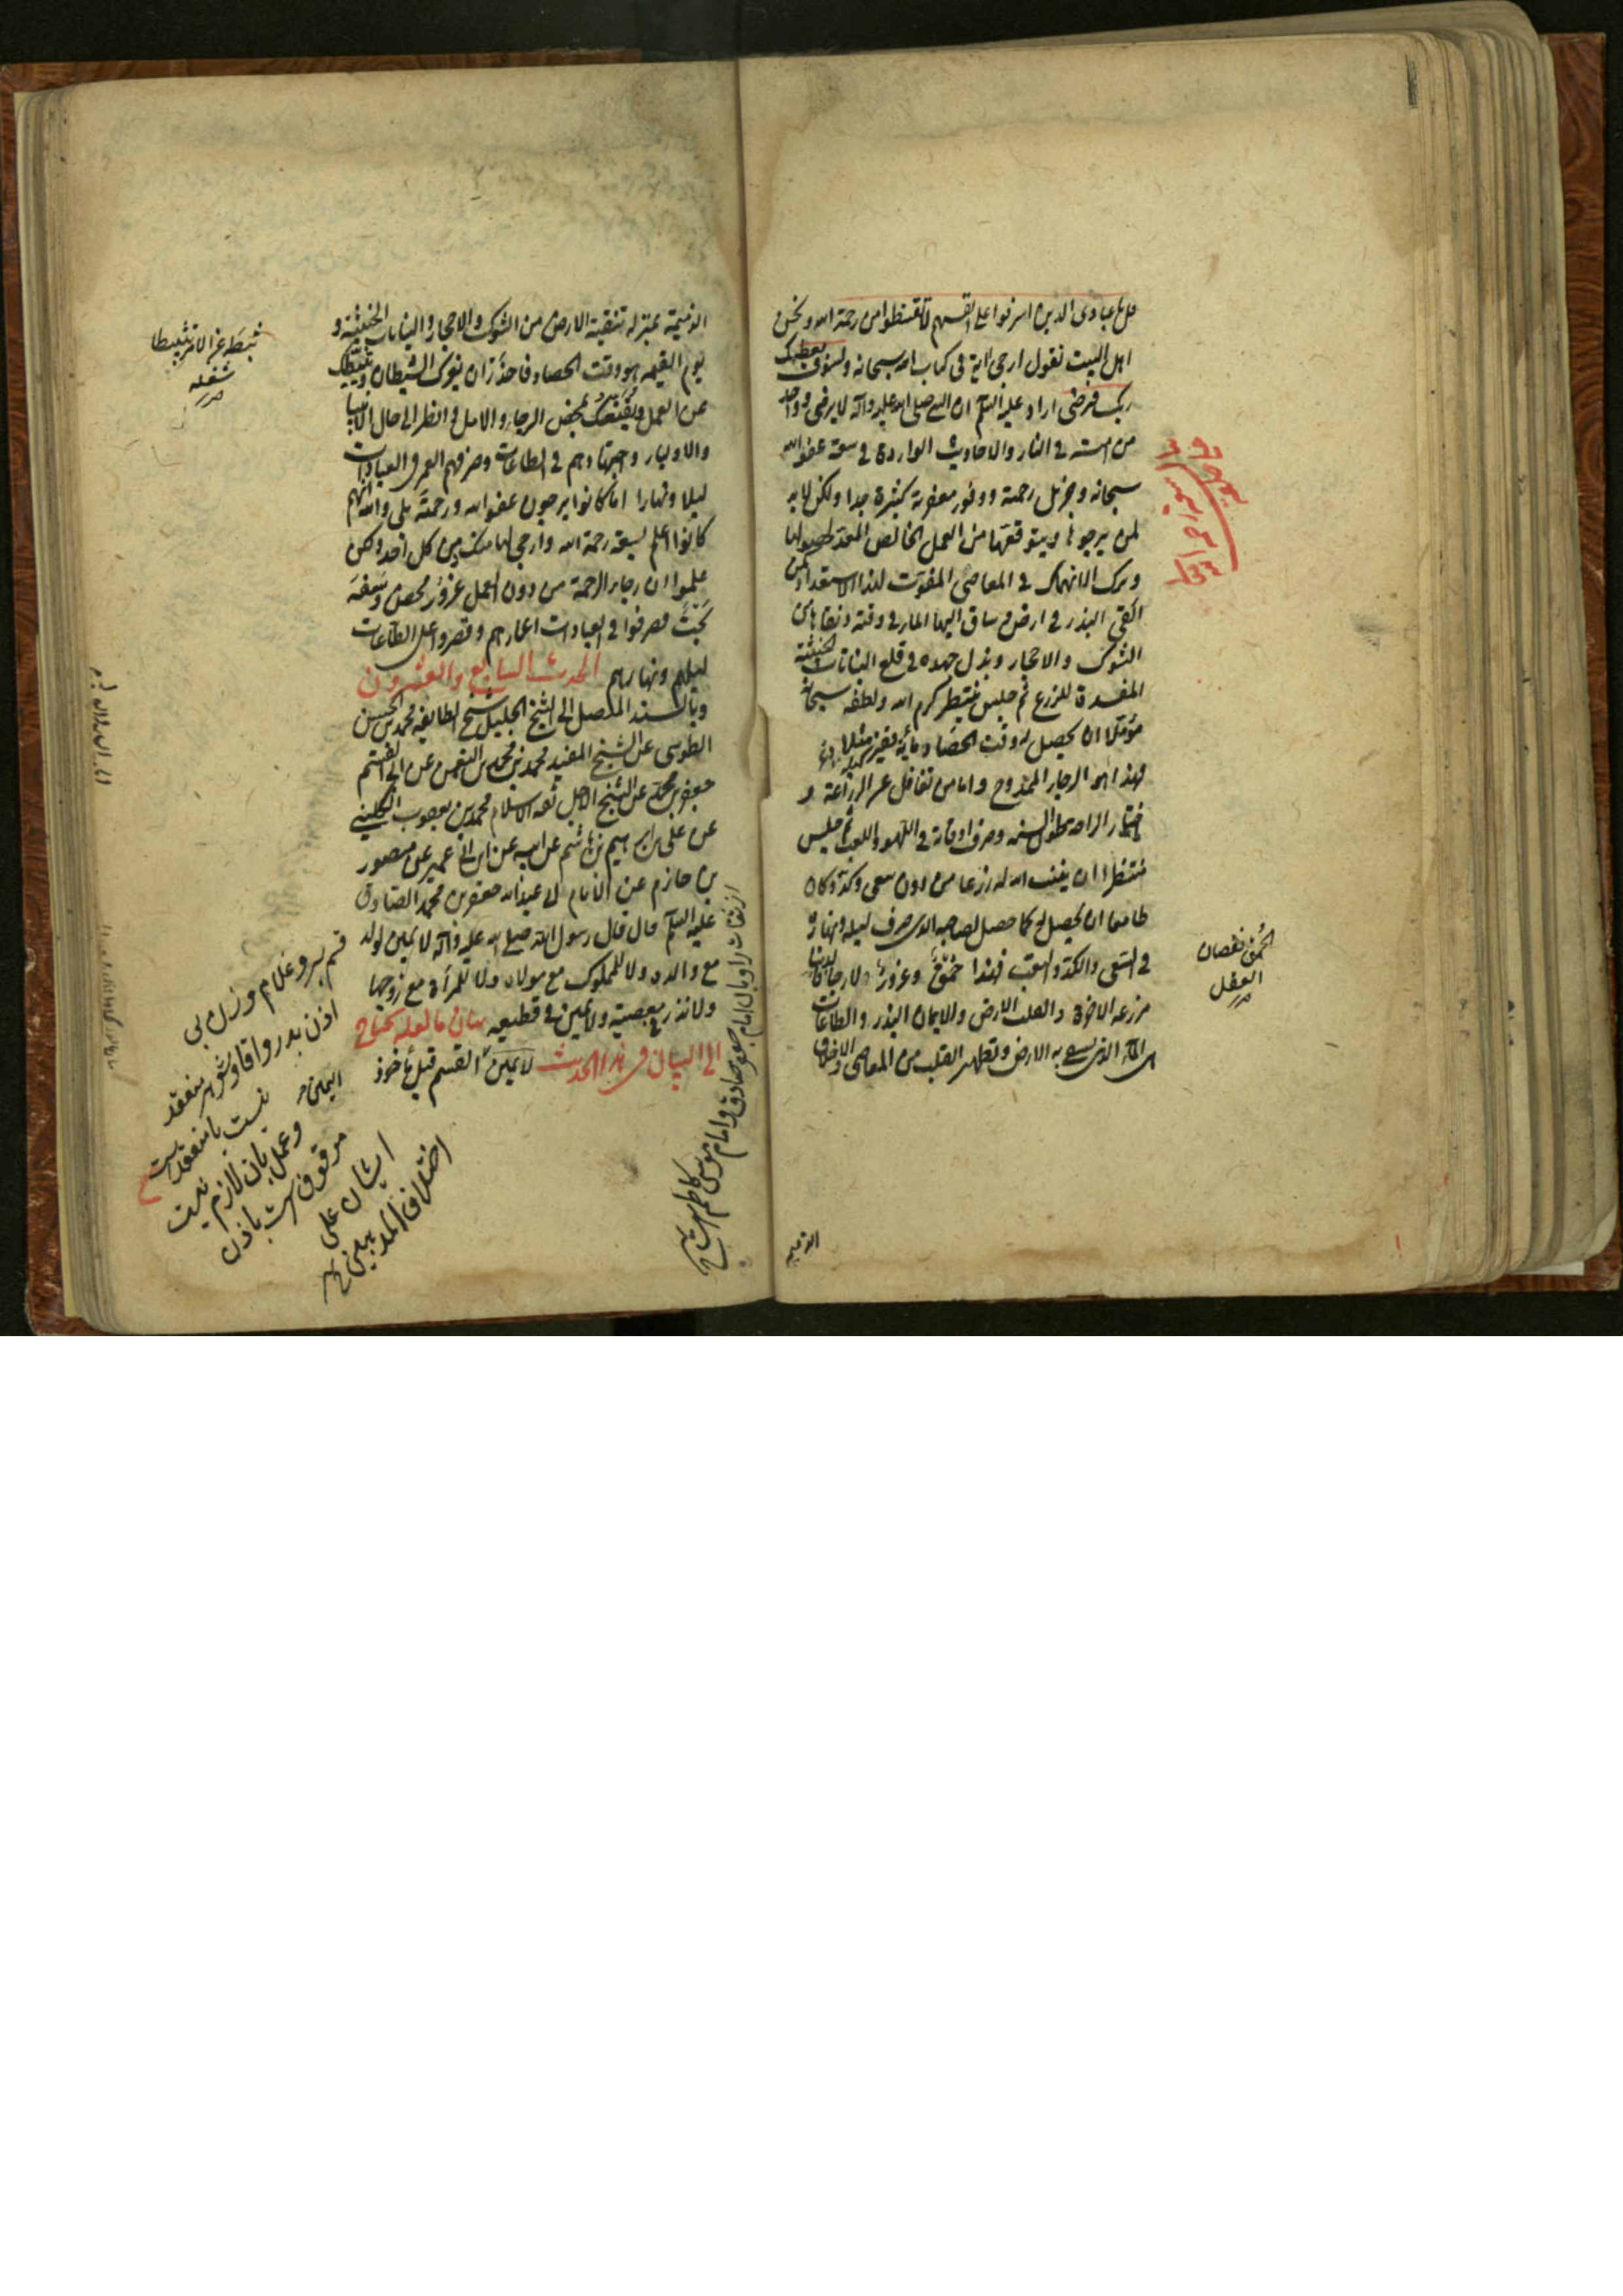 قل يا عبادى الذين اسرفوا على انفسهم لا تقنطوا من رحمة الله ونحن
اهل البيت نقول ارجى آية فى كتاب الله سبحانه ولسوف يعطيك
ربك فترضى اراد عليه السلم ان النبي صلى الله عليه وآله لا يرضى وواحد
من امته فى النار والاحاديث الواردة فى سعة عفو الله
سبحانه وجزيل رحمته ووفور مغفرته كثيرة جدا ولكن لا بد
لمن يرجوها ويتوقعها من العمل الخالص المعد لحصولها
وترك الانهماك فى المعاصى المفوت لهذا الاستعداد كمن
القى البذر فى ارض وساق اليها الماء فى وقته ونقاها من
الشوك والاحجار وبذل جهده فى قلع النباتات الخبيثة
المفسدة للزرع ثم جلس ينتظر كرم الله ولطفه سبحانه
مؤملا ان يحصل له وقت الحصاد مأية قفيز مثلا
فهذا هو الرجاء الممدوح واما من تغافل عن الزراعة و
اختار الراحة طول السنة وصرف اوقاته فى اللهو واللعب ثم جلس
منتظرا ان ينبت الله له زرعا من دون سعى وكد وكان
طامعا ان يحصل له كما حصل لصاحبه الذى صرف ليله ونهاره
فى السعى والكد والتعب فهذا حمق وغرور لا رجاء فالدنيا
مزرعة الاخرة والقلب الارض والايمان البذر والطاعات
هى الماء الذى يسقى به الارض وتطهير القلب من المعاصى والاخلاق
الحمق نقصان
العقل
الذميمة
الذميمة بمنزلة تنقية الارض من الشوك والاحجار والنباتات الخبيثة و
يوم القيمة هو وقت الحصاد فاحذر ان يغرك الشيطان ويثبطك
عن العمل ويقنعك بمحض الرجاء والامل وانظر الى حال الانبيا
والاولياء واجتهادهم فى الطاعات وصرفهم العمر فى العبادات
ليلا ونهارا اما كانوا يرجون عفو الله ورحمته بلى والله انهم
كانوا اعلم بسعة رحمة الله وارجى لها منك ومن كل احد ولكن
علموا ان رجاء الرحمة من دون العمل غرور محض وسفه
بحت فصرفوا فى العبادات اعمارهم وقصروا على الطاعات
ليلهم ونهارهم الحديث السابع والعشرون
وبالسند المتصل الى الشيخ الجليل شيخ الطايفة محمد بن الحسن
الطوسى عن الشيخ المفيد محمد بن محمد بن النعمن عن ابى القسم
جعفر بن محمد عن الشيخ الاجل ثقة الاسلام محمد بن يعقوب الكليني
عن على بن ابرهيم بن هاشم عن ابيه عن ابن ابى عمير عن منصور
بن حازم عن الامام ابى عبد الله جعفر بن محمد الصادق
عليه السلم قال قال رسول الله صلى الله عليه وآله لا يمين لولد
مع والده ولا للمملوك مع مولاه ولا للمرأة مع زوجها
ولا نذر فى معصية ولا يمين فى قطيعة بيان ما لعله يحتاج
الى البيان فى هذا الحديث لا يمين القسم قيل مأخوذ
ثبطه عن الامر تثبيطا
شغله
از ثقات راويان امام جعفر صادق وامام موسى كاظم است
قسم پسر و غلام و زن بى
اذن پدر و اقا و شوهر منعقد
نيست يا منعقد است
وعمل بان لازم نيست
موقوف است باذن
ايشان على
اختلاف المذهبين